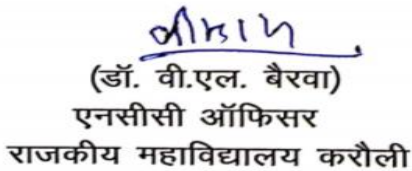 (डॉ. वी.एल. बैरवा)
एनसीसी ऑफिसर
राजकीय महाविद्यालय करौली